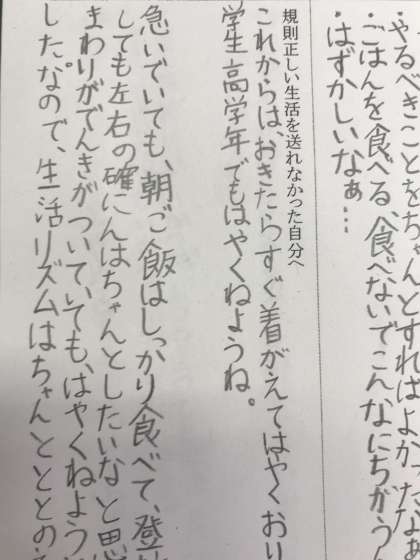 ・やるべきことをちゃんとすればよかったなぁ
・ごはんを食べる食べないでこんなにちがう
・はずかしいなぁ…
規則正しい生活を送れなかった自分へ
これからは、おきたらすぐ着がえてはやくおり
学生高学年でもはやくねようね。
急いでいても、朝ご飯はしっかり食べて、登
しても左右の確にんはちゃんとしたいなと思
まわりがでんきがついていても、はやくねよう
した。なので、生活リズムはちゃんとととの